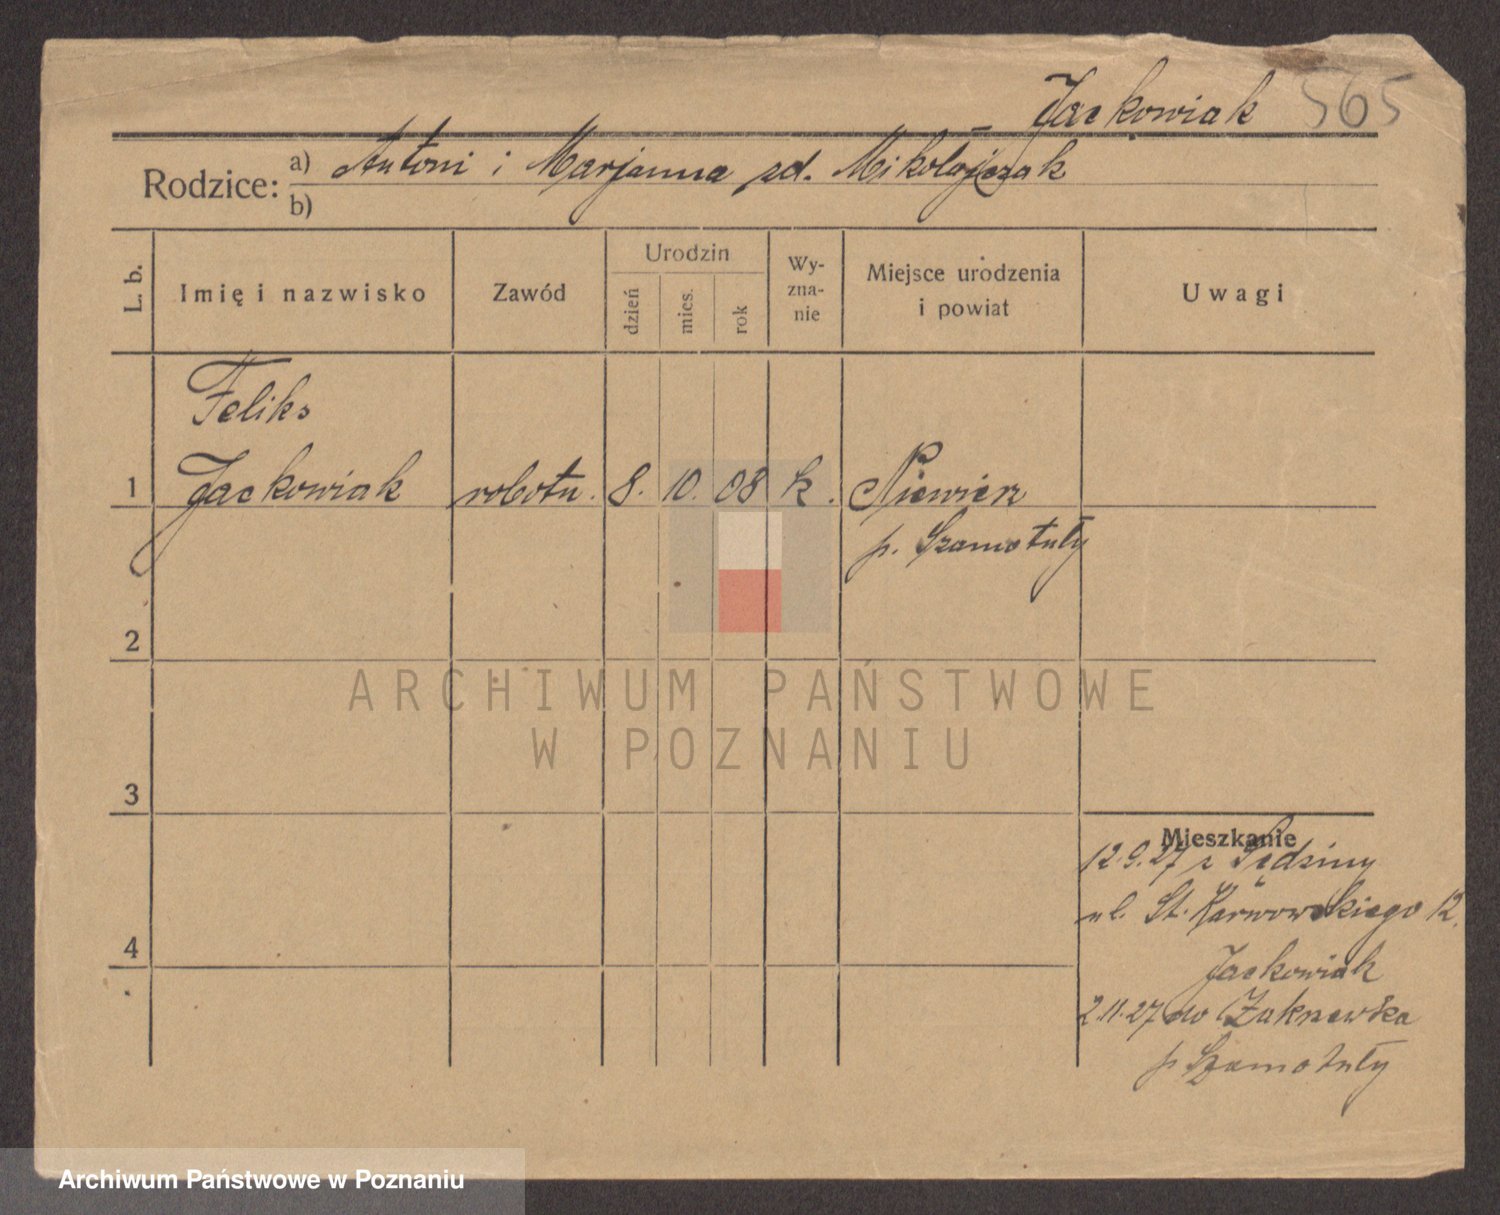 Jackowiak 565
Rodzice: a) Antoni i Marjanna zd. Mikołajczak
b)
L. b. Imię i nazwisko Zawód Urodzin dzień mies. rok Wyznanie Miejsce urodzenia i powiat Uwagi
Feliks
1 Jackowiak robotn. 8. 10. 08 k. Niewierz
p. Szamotuły
2
ARCHIWUM PAŃSTWOWE
W POZNANIU
3
Mieszkanie
12.9.27 z Sędziny
ul. St. Karwowskiego 12.
4
Jackowiak
2.11.27 do Zakrzewka
p Szamotuły
Archiwum Państwowe w Poznaniu